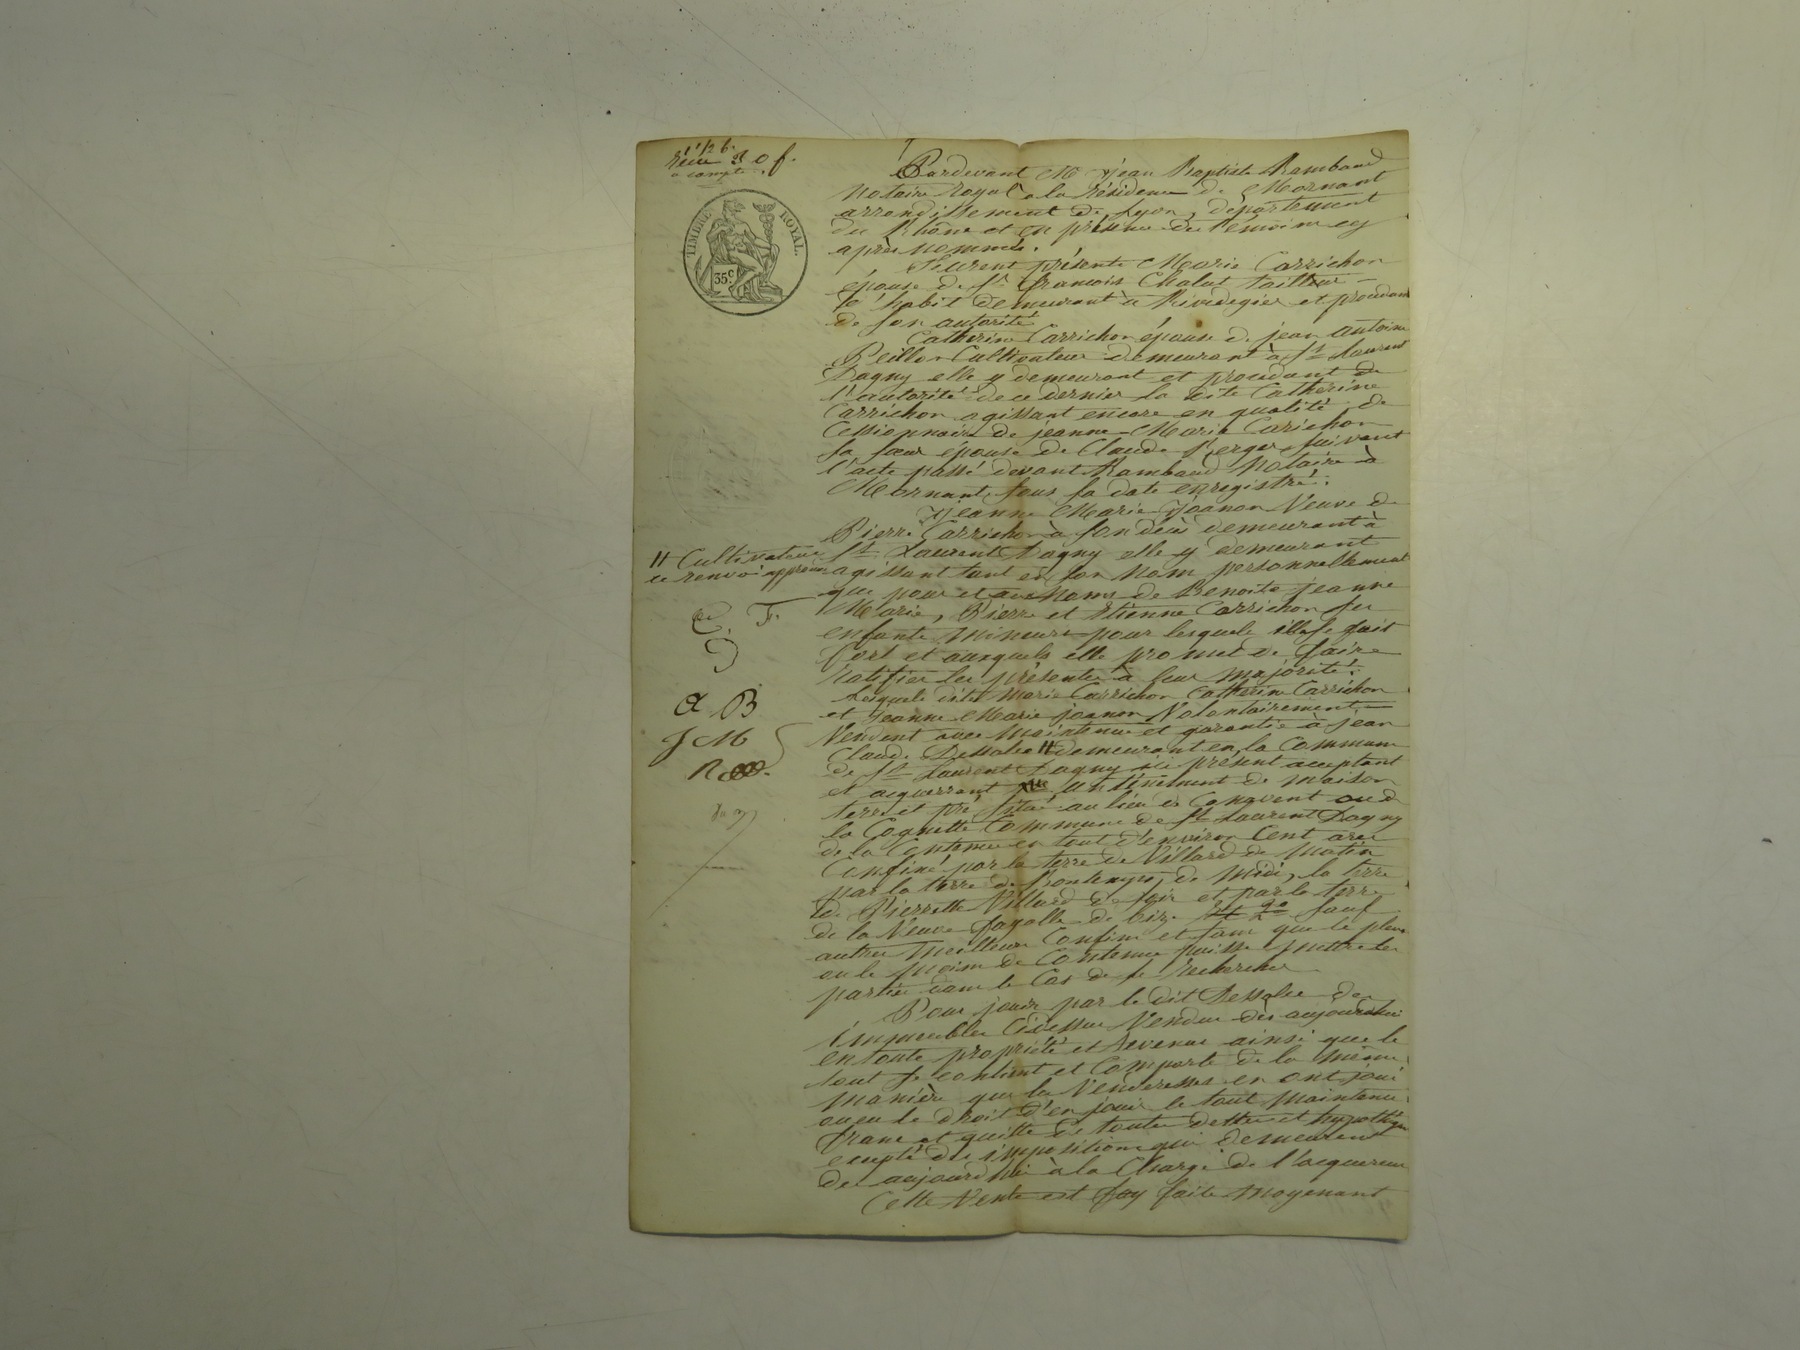 reçu 30 f.
à compte
TIMBRE ROYAL
35 c.
Pardevant Me Jean Baptiste Rambaud
Notaire Royal a la résidence de Mornant
arrondissement de Lyon, département
du Rhône et en présence des témoins cy
après nommés.
Seurent présents Marie Carrichon
épouse de Sr. François Chalut tailleur
d'habit demeurant à Rivedegier et procédant
de son autorité
Catherine Carrichon épouse de jean antoine
Peillon Cultivateur demeurant à St. Laurent
Dagny elle y demeurant et procédant de
l'autorité de ce dernier la dite Catherine
Carrichon agissant encore en qualité de
Cessionnaire de jeanne Marie Carichon
sa sœur épouse de Claude Berger suivant
l'acte passé devant Rambaud Notaire à
Mornant, sous sa date enregistré.
Jeanne Marie Joanon Veuve de
Pierre Carrichon à son décès demeurant à
St. Laurent Dagny elle y demeurant
agissant tant en son Nom personnellement
que pour et aux Noms de Benoite jeanne
Marie, Pierre et Etienne Carrichon ses
enfants Mineurs pour lesquels elle se fait
fort et auxquels elle promet de faire
ratifier les présentes à leur majorité.
Lesquels dite Marie Carrichon Catherine Carrichon
et jeanne Marie joanon Volontairement
Vendent avec Maintenue et garantie à jean
Claude Dessalee # demeurant en la Commune
de St. Laurent Dagny ici présent acceptant
et acquerrant un tènement de maison
terre et pré, situé au lieu de Conovent ou d
la Cognette Commune de St. Laurent Dagny
de la Contenue en tout d'environ Cent ares
Confiné par la terre de Villard de Matin
par la terre de Bontemps, de Midi, la terre
de Pierrette Villard de soir et par la terre
de la Veuve Fayolle de bize sauf
autres Meilleurs Confins et sans que le plus
ou le Moins de Contenue puisse Mettre les
parties dans le Cas de se rechercher
Pour jouir par le dit Dessalee des
immeubles Cidessus Vendus dès aujourdhui
en toute propriété et revenus ainsi que le
tout se contient et Comporte de la même
Manière que les Venderesses en ont joui
ou eu le droit d'en jouir le tout Maintenu
franc et quitte de toutes dettes et hypothèques
excepté des impositions qui demeurent
des aujourdhui à la Charge de l'acquéreur
Cette Vente est fay faite Moyenant
# Cultivateur
ce renvoi approuvé
C. F.
D
A B
J M
R